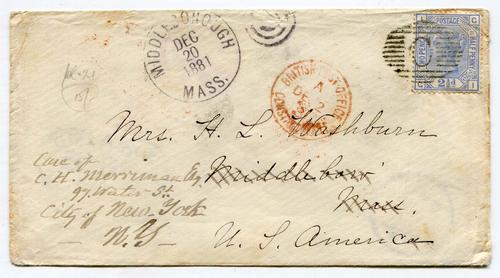 MIDDLEBOROUGH
DEC
20
1881
MASS.
BRITISH POST OFFICE
A
DE 2
POSTAGE
2½d
Mrs. H. L. Washburn
Middleboro'
Mass.
U. S. America
Care of
C. H. Merriman Esq
97 Water St.
City of New York
— N. Y —